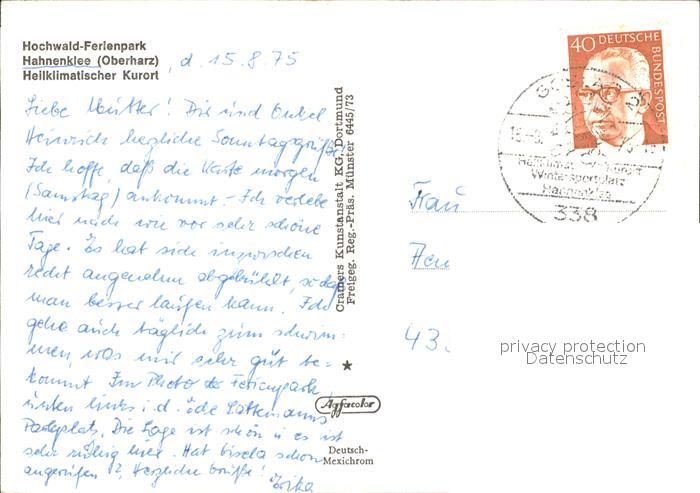 Hochwald-Ferienpark
Hahnenklee (Oberharz)
Heilklimatischer Kurort
, d. 15.8.75
Liebe Mutter! Dir und Onkel
Heinrich herzliche Sonntagsgrüße.
Ich hoffe, daß die Karte morgen
(Samstag) ankommt – Ich verlebe
hier nach wie vor sehr schöne
Tage. Es hat sich inzwischen
recht angenehm abgekühlt, so daß
man besser laufen kann. Ich
gehe auch täglich zum schwim-
men, was mir sehr gut be-
kommt. Im Photo Ferienpark
unten links i. d.
Parkplatz. Die Lage ist schön u. es ist
sehr ruhig hier. Hat Gisela schon
angerufen?, Herzliche Grüße!
Erika
Cramers Kunstanstalt KG. Dortmund
Freigeg. Reg.-Präs. Münster 6445/73
Agfacolor
Deutsch-
Mexichrom
40 DEUTSCHE
BUNDESPOST
Heilklimat. Kurort
Wintersportplatz
Hahnenklee
338
Frau
43.
privacy protection
Datenschutz